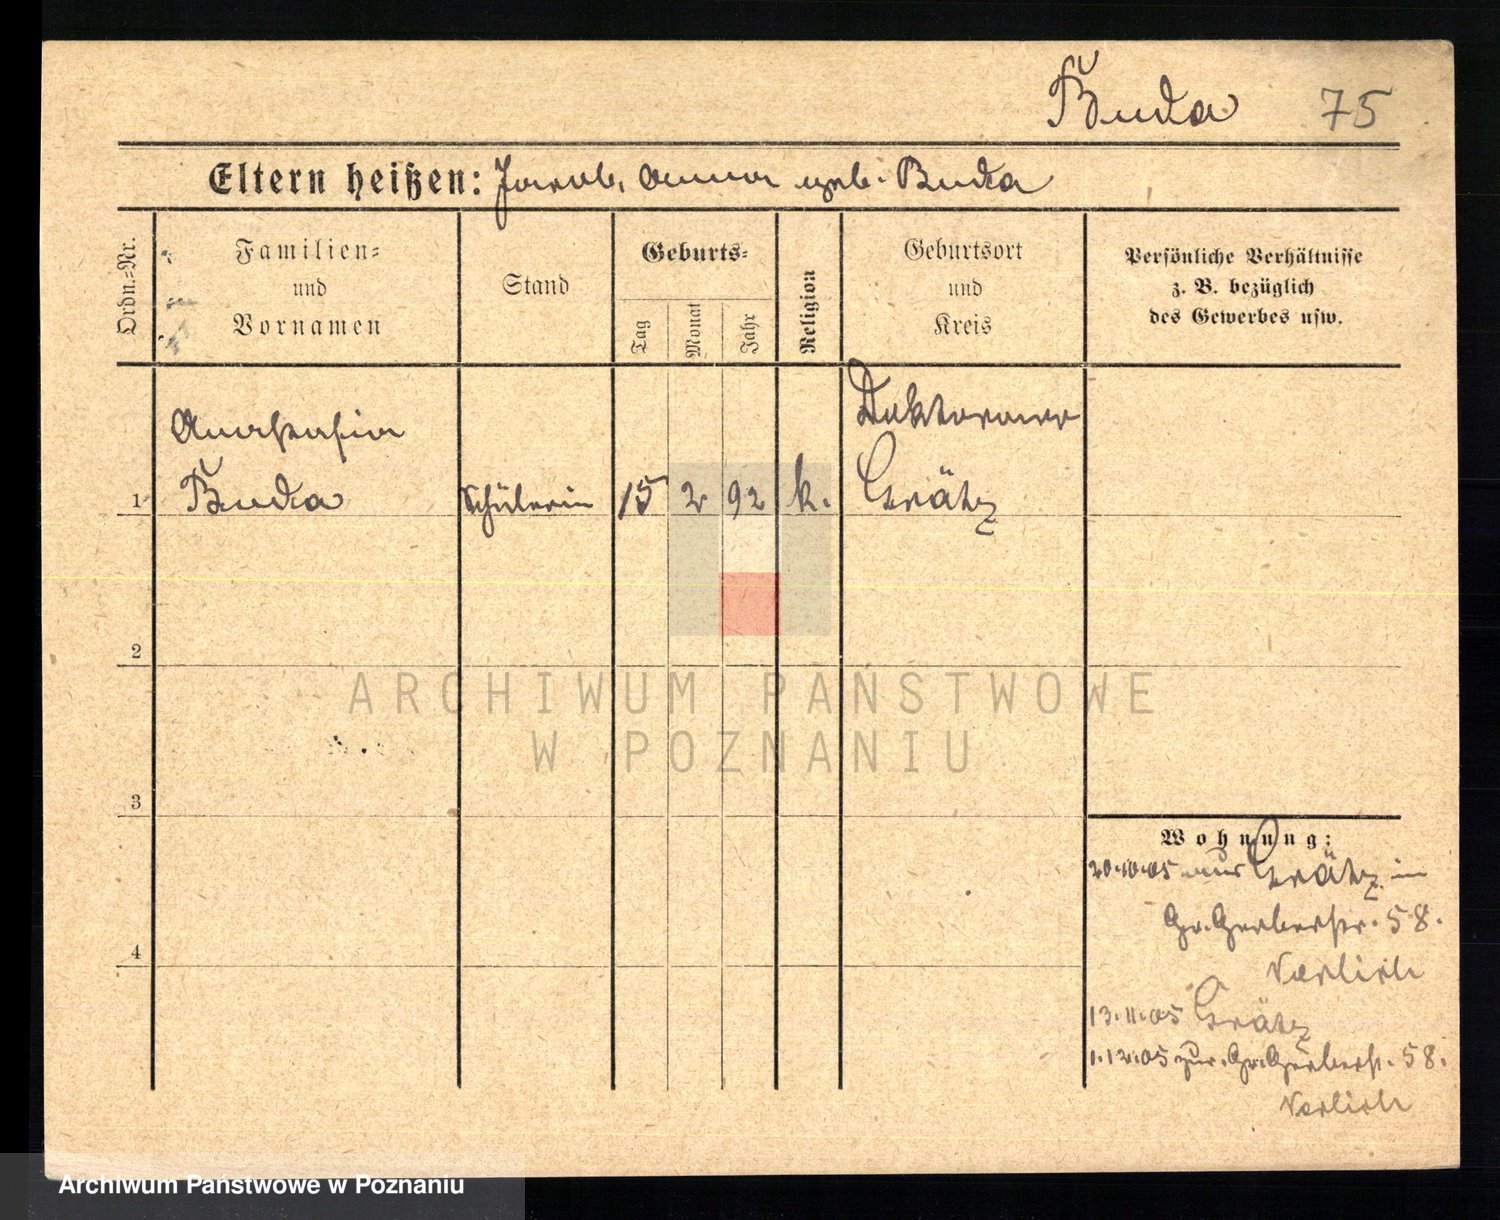 Buda 75
Eltern heißen: Jacob, Anna geb. Buda
Ordn.=Nr.
Familien=
und
Vornamen
Stand
Geburts=
Tag
Monat
Jahr
Religion
Geburtsort
und
Kreis
Persönliche Verhältnisse
z. B. bezüglich
des Gewerbes usw.
Anastasia
Buda
1
Schülerin
15
2
92
k.
Doktorowo
Grätz
2
3
4
Wohnung:
20.10.05 aus Grätz in
Gr. Gerberstr. 58.
13.11.05 Grätz
1.12.05 zur. Gr. Gerberst. 58.
ARCHIWUM PAŃSTWOWE
W POZNANIU
Archiwum Państwowe w Poznaniu